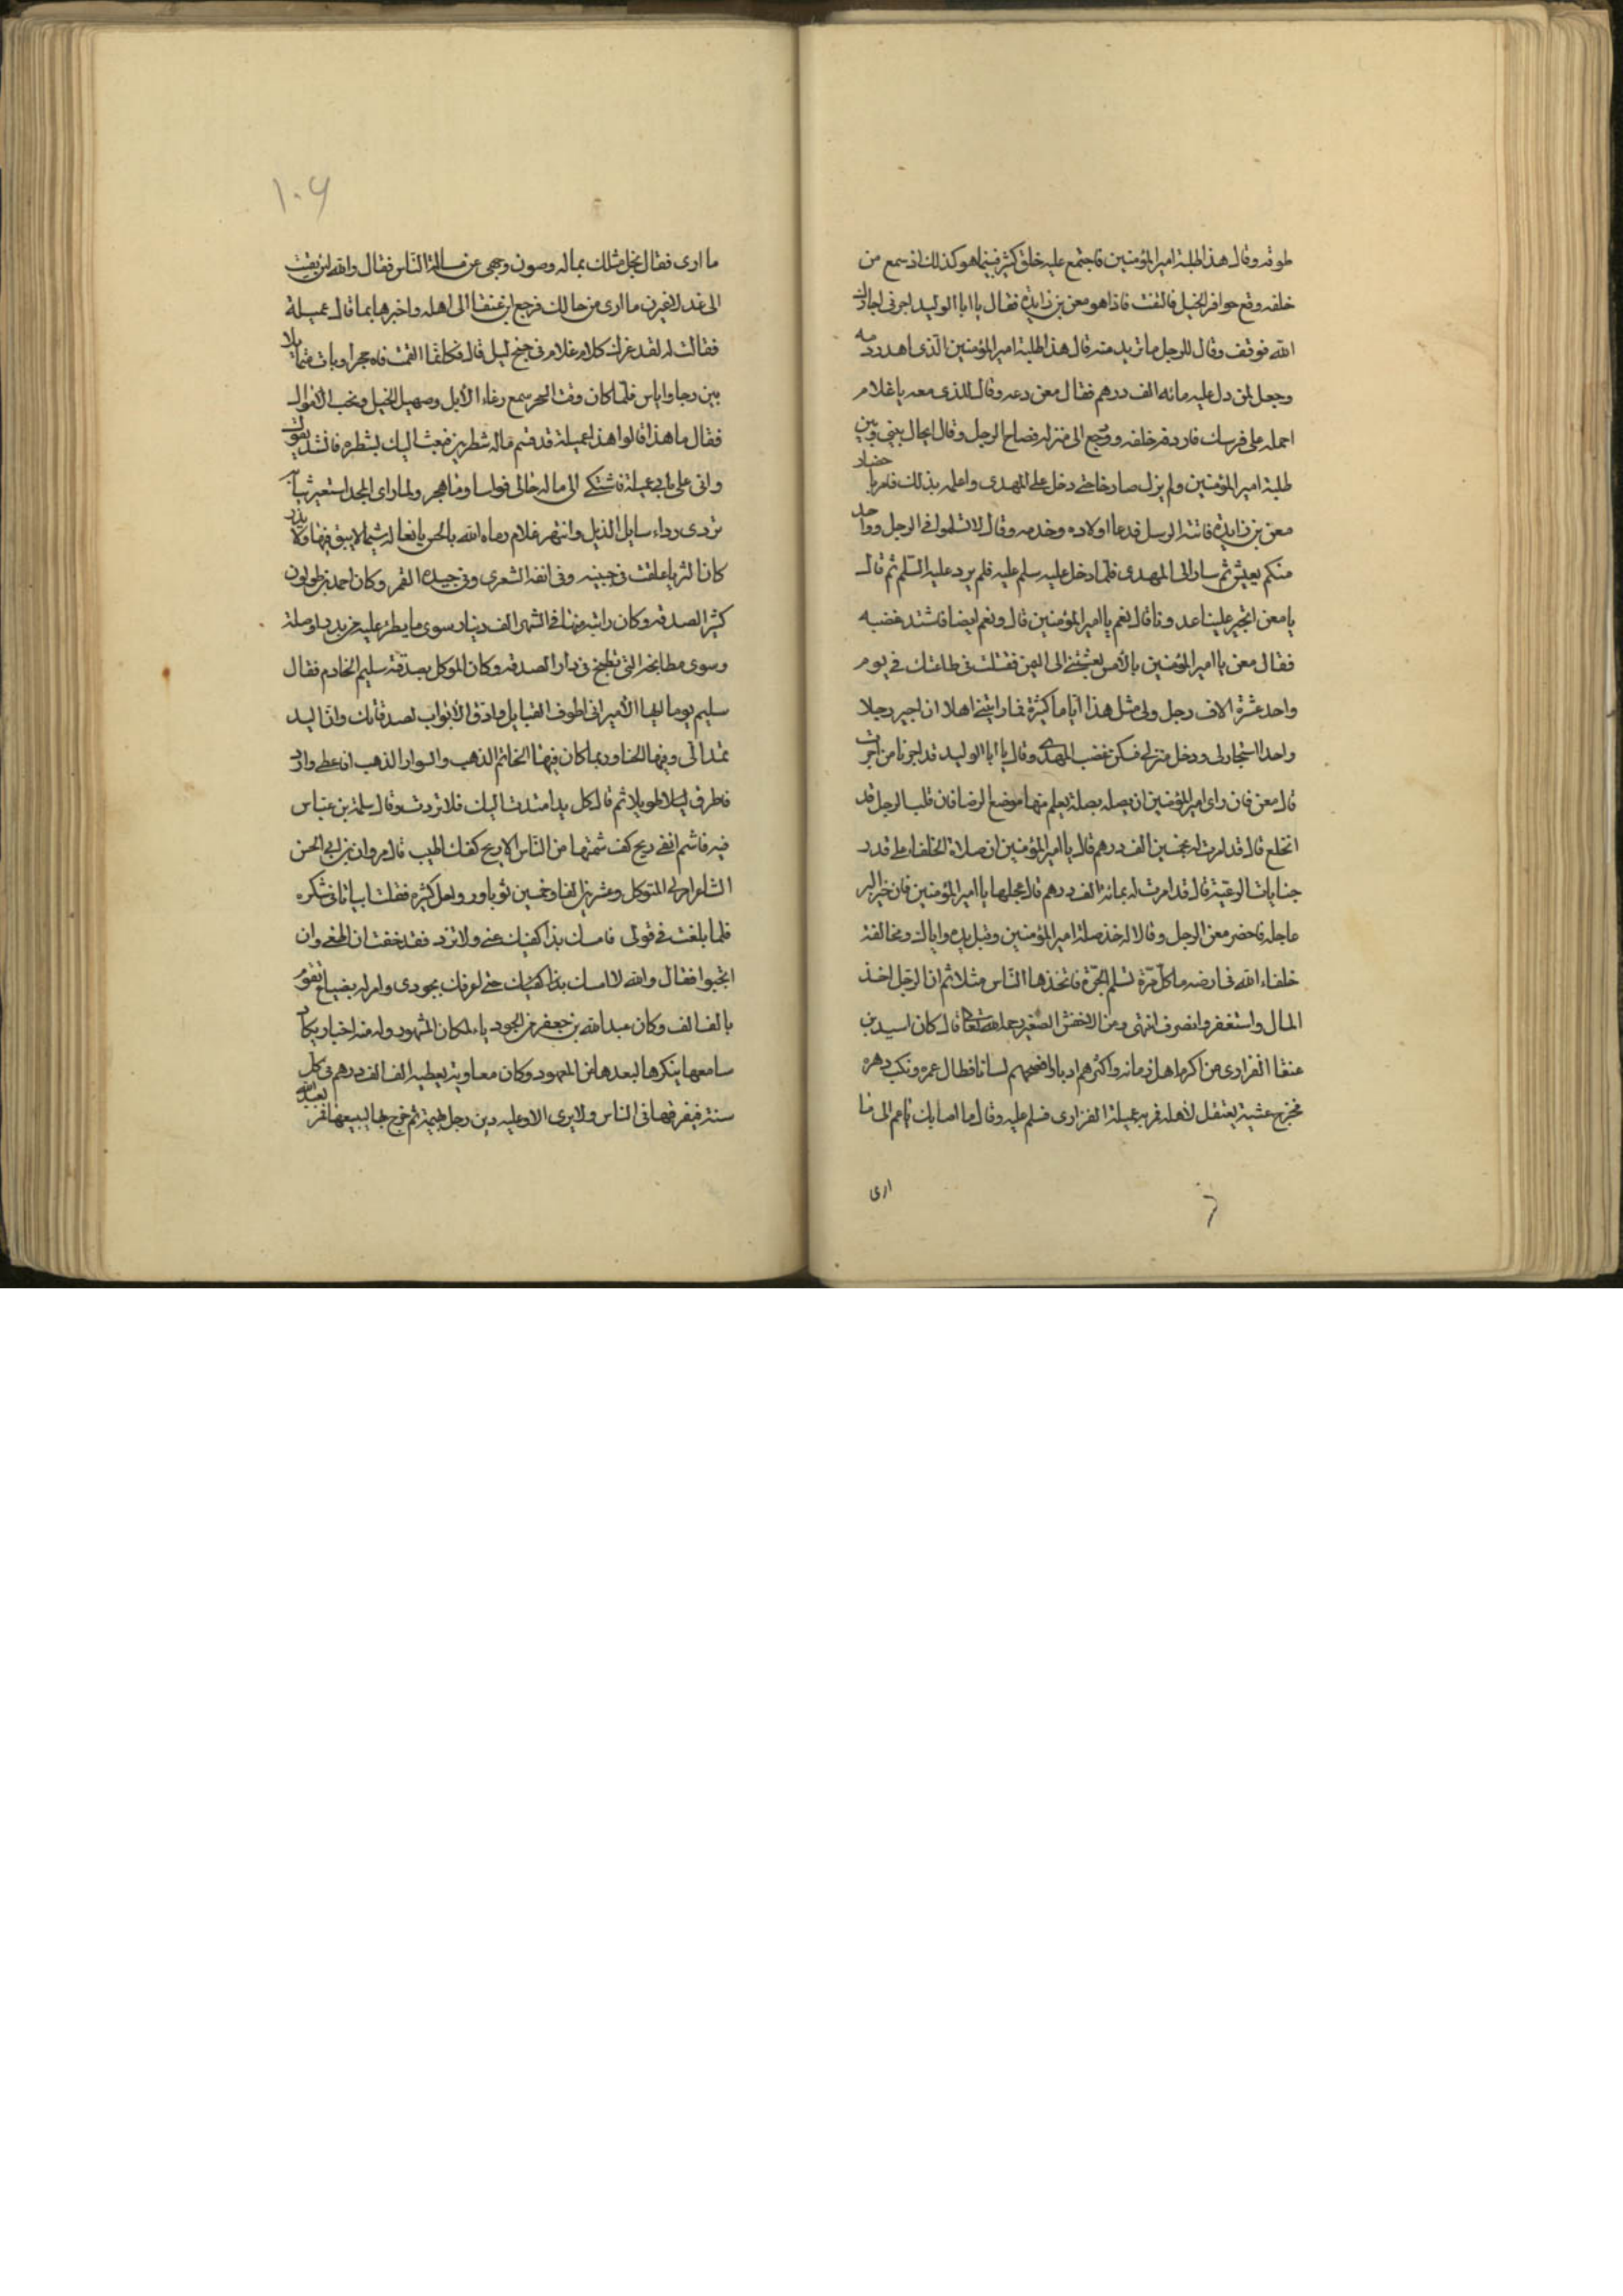 طوقه وقال هذا طلبة امير المؤمنين فاجتمع عليه خلق كثير فبينما هو كذلك اذ سمع من
خلفه وقع حوافر الخيل فالتفت فاذا هو معن بن زايدة فقال يا ابا الوليد اجرني اجارك
الله فوقف وقال للرجل ما تريد منه قال هذا طلبة امير المؤمنين الذي اهدر دمه
وجعل لمن دل عليه مائه الف درهم فقال معن دعه وقال للذي معه يا غلام
احمله على فرسك فاردفه خلفه ورجع الى منزله فصاح الرجل وقال ايحال بيني وبين
طلبة امير المؤمنين ولم يزل صارخا حتى دخل على المهدى واعلمه بذلك فامر باحضار
معن بن زايدة فاتته الرسل فدعا اولاده وخدمه وقال لا تسلموا في الرجل وواحد
منكم يعيش ثم سار الى المهدى فلما دخل عليه سلم عليه فلم يرد عليه السلم ثم قال
يا معن اتجير علينا عدونا قال نعم يا امير المؤمنين قال ونعم ايضا فاشتد غضبه
فقال معن يا امير المؤمنين بالامس بعثتني الى اليمن فقتلت في طاعتك في يوم
واحد عشرة الاف رجل ولي مثل هذا اياما كثيرة فما رايتني اهلا ان اجير رجلا
واحدا استجار لي ودخل منزلي فسكن غضب المهدى وقال يا ابا الوليد قد اجرنا من اجرت
قال معن فان راى امير المؤمنين ان يصله بصلة يعلم منها موضع الرضا فان قلب الرجل قد
انخلع قال قد امرت له بخمسين الف درهم قال يا امير المؤمنين ان صلاة الخلفاء على قدر
جنايات الرعية قال قد امرت له بمائة الف درهم قال عجلها يا امير المؤمنين فان خير البر
عاجله فاحضر معن الرجل وقال له خذ صلة امير المؤمنين وقبل يده واياك ومخالفة
خلفاء الله في ارضه ما كل مرة تسلم الجرة فاتخذها الناس مثلا ثم ان الرجل اخذ
المال واستغفر وانصرف انتهى وعن الاخفش الصغير قال كان اسيد بن
عنقا الفزارى من اكرم اهل زمانه واكثرهم ادبا وافصحهم لسانا فطال عمره ونكب دهره
فخرج عشية يعتقل لاهله فمر به عميلة الفزارى فسلم عليه وقال ما اصابك يا عم الى ما
ارى
١٠٦
ما ارى فقال بخل مثلك بماله وصون وجهي عن مسالة الناس فقال والله لئن بقيت
الى غد لاغيرن ما ارى من حالك فرجع ابن عنقا الى اهله واخبرها بما قال عميلة
فقالت له لقد غرك كلام غلام في جنح ليل قال فكانما القمت فاه حجرا وبات متمايلا
بين رجا واياس فلما كان وقت السحر سمع رغاء الابل وصهيل الخيل ونحب الاموال
فقال ما هذا قالوا هذا عميلة قد قسم ماله شطرين فبعث اليك بشطره فانشد يقول
تردى رداء سايل الذيل واتزر غلام رماه الله بالحسن يافعا له شيما لا
كان الثريا علقت في جبينه وفي انفه الشعرى وفي جيده القمر وكان احمد بن طولون
كثير الصدقه وكان راتبه منها في الشهر الف دينار سوى ما يطرئ عليه من نذر او صلة
وسوى مطابخه التي تطبخ في دار الصدقه وكان الموكل بصدقته سليم الخادم فقال
سليم يوما ايها الامير اني اطوف القبايل وادق الابواب لصدقاتك وان اليد
تمتد الي وفيها الحنا وربما كان فيها الخاتم الذهب والسوار الذهب افاعطي وارد
فاطرق ليلا طويلا ثم قال كل يد امتدت اليك فلا تردها وقال سلمة بن عياش
فيه فاشم انفي ريح كف شممتها من الناس الا ريح كفك اطيب قال مروان بن ابي الحسن
الشاعر امر لي المتوكل وعشرين الفا وخمسين ثوبا ورواحل كثيره فقلت ابياتا في شكره
فلما بلغت في قولي فامسك بذا كفيك عني ولا تزد فقد خفت ان اطغى وان
اتجبرا فقال والله لا امسك بذا كفيك حتى اغرقك بجودى وامر له بضياع تقوم
بالف الف وكان عبدالله بن جعفر من الجود بالمكان المشهود وله فيه اخبار يكاد
سامعها ينكرها لبعدها من المعهود وكان معاوية يعطيه الف الف درهم في كل
سنة فيفرقها في الناس ولا يرى الا وعليه دين ثم خرج بها ليبيعها فمر بعبد الله